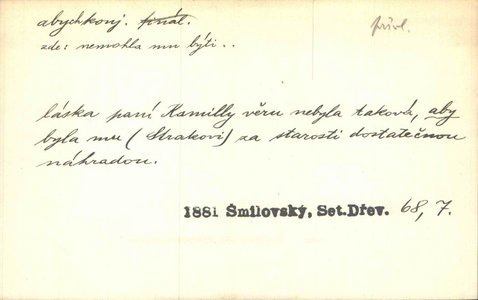 abych konj. finál. přívl.
zde: nemohla mu býti..
láska paní Kamilly věru nebyla taková, aby
byla mu (Strakovi) za starosti dostatečnou
náhradou.
1881 Šmilovský, Set.Dřev. 68, 7.